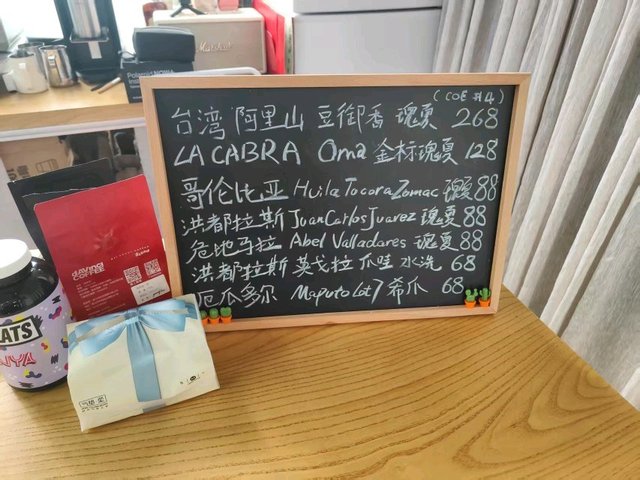 Marshall
Polaroid NOW
(COE #4)
台湾 阿里山 豆御香 瑰夏 268
LA CABRA Oma 金标瑰夏 128
哥伦比亚 Huila Tocora Zomac 瑰夏 88
洪都拉斯 Juan Carlos Juarez 瑰夏 88
危地马拉 Abel Valladares 瑰夏 88
洪都拉斯 英戈拉 爪哇 水洗 68
厄瓜多尔 Maputo Lot7 希爪 68
COFFEE